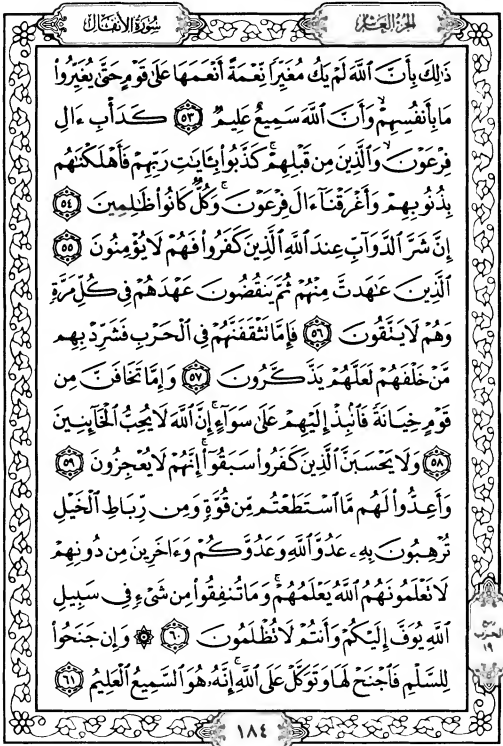 سُورَةُ الأَنفَالِ
الجُزْءُ العَاشِرُ
ذَٰلِكَ بِأَنَّ ٱللَّهَ لَمْ يَكُ مُغَيِّرًا نِّعْمَةً أَنْعَمَهَا عَلَىٰ قَوْمٍ حَتَّىٰ يُغَيِّرُوا۟
مَا بِأَنفُسِهِمْ ۙ وَأَنَّ ٱللَّهَ سَمِيعٌ عَلِيمٌ ٥٣ كَدَأْبِ ءَالِ
فِرْعَوْنَ ۙ وَٱلَّذِينَ مِن قَبْلِهِمْ ۚ كَذَّبُوا۟ بِـَٔايَٰتِ رَبِّهِمْ فَأَهْلَكْنَٰهُم
بِذُنُوبِهِمْ وَأَغْرَقْنَآ ءَالَ فِرْعَوْنَ ۚ وَكُلٌّ كَانُوا۟ ظَٰلِمِينَ ٥٤
إِنَّ شَرَّ ٱلدَّوَآبِّ عِندَ ٱللَّهِ ٱلَّذِينَ كَفَرُوا۟ فَهُمْ لَا يُؤْمِنُونَ ٥٥
ٱلَّذِينَ عَٰهَدتَّ مِنْهُمْ ثُمَّ يَنقُضُونَ عَهْدَهُمْ فِى كُلِّ مَرَّةٍ
وَهُمْ لَا يَتَّقُونَ ٥٦ فَإِمَّا تَثْقَفَنَّهُمْ فِى ٱلْحَرْبِ فَشَرِّدْ بِهِم
مَّنْ خَلْفَهُمْ لَعَلَّهُمْ يَذَّكَّرُونَ ٥٧ وَإِمَّا تَخَافَنَّ مِن
قَوْمٍ خِيَانَةً فَٱنۢبِذْ إِلَيْهِمْ عَلَىٰ سَوَآءٍ ۚ إِنَّ ٱللَّهَ لَا يُحِبُّ ٱلْخَآئِنِينَ
٥٨ وَلَا يَحْسَبَنَّ ٱلَّذِينَ كَفَرُوا۟ سَبَقُوٓا۟ ۚ إِنَّهُمْ لَا يُعْجِزُونَ ٥٩
وَأَعِدُّوا۟ لَهُم مَّا ٱسْتَطَعْتُم مِّن قُوَّةٍ وَمِن رِّبَاطِ ٱلْخَيْلِ
تُرْهِبُونَ بِهِۦ عَدُوَّ ٱللَّهِ وَعَدُوَّكُمْ وَءَاخَرِينَ مِن دُونِهِمْ
لَا تَعْلَمُونَهُمُ ٱللَّهُ يَعْلَمُهُمْ ۚ وَمَا تُنفِقُوا۟ مِن شَىْءٍ فِى سَبِيلِ
ٱللَّهِ يُوَفَّ إِلَيْكُمْ وَأَنتُمْ لَا تُظْلَمُونَ ٦٠ ۞ وَإِن جَنَحُوا۟
لِلسَّلْمِ فَٱجْنَحْ لَهَا وَتَوَكَّلْ عَلَى ٱللَّهِ ۚ إِنَّهُۥ هُوَ ٱلسَّمِيعُ ٱلْعَلِيمُ ٦١
ربع
الحزب
١٩
١٨٤